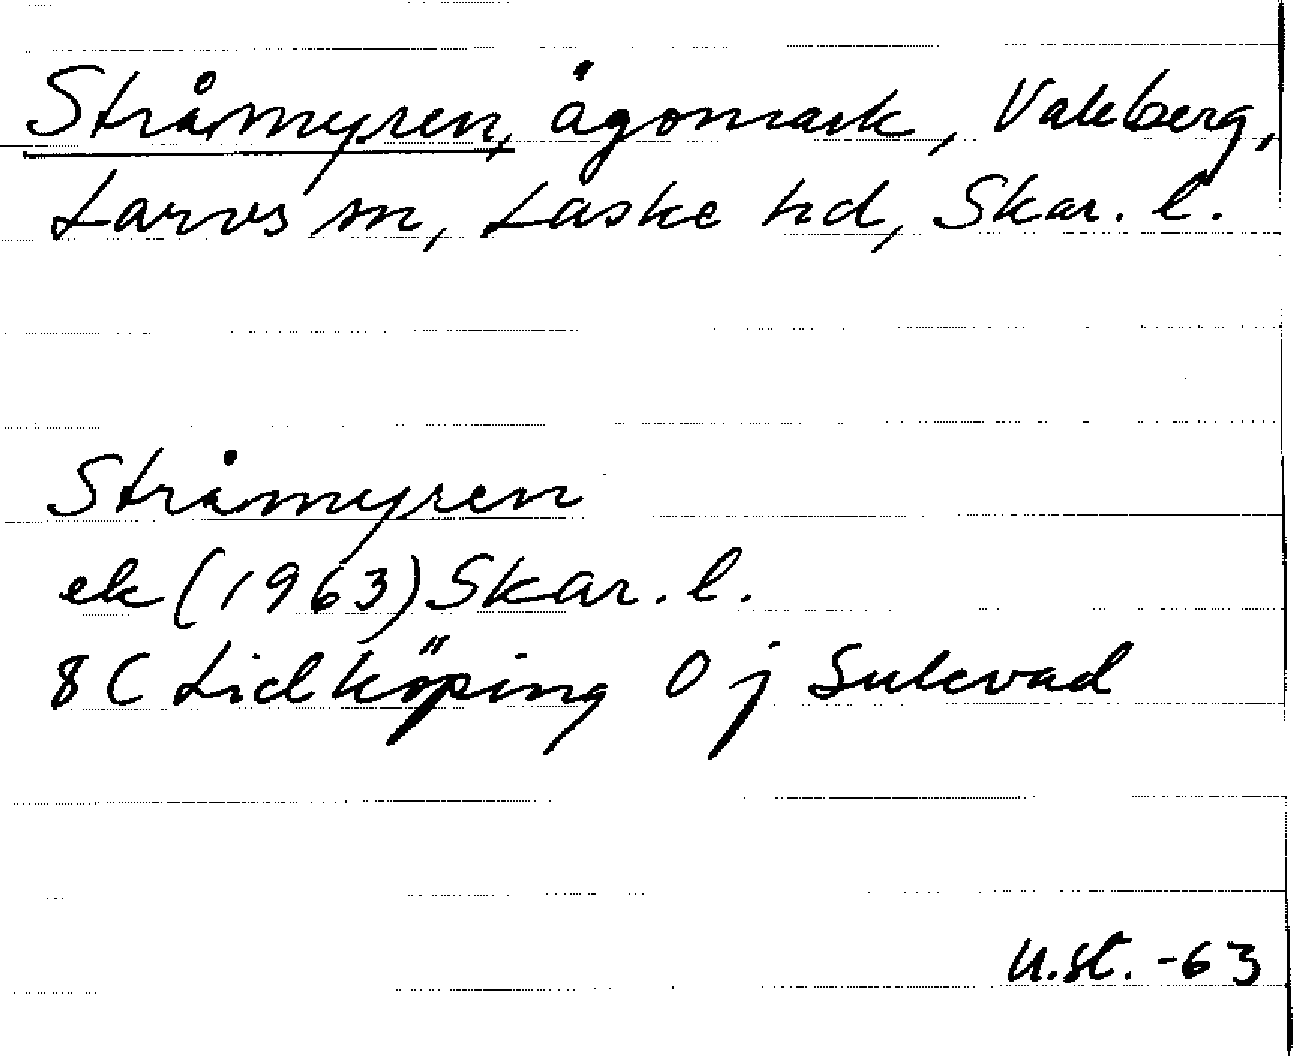 Stråmyren, ägomark, Vakberg,
Larvs sn, Laske hd, Skar. l.
Stråmyren
ek (1963) Skar. l.
8 C Lidköping 0 j Sulevad
U.St. -63